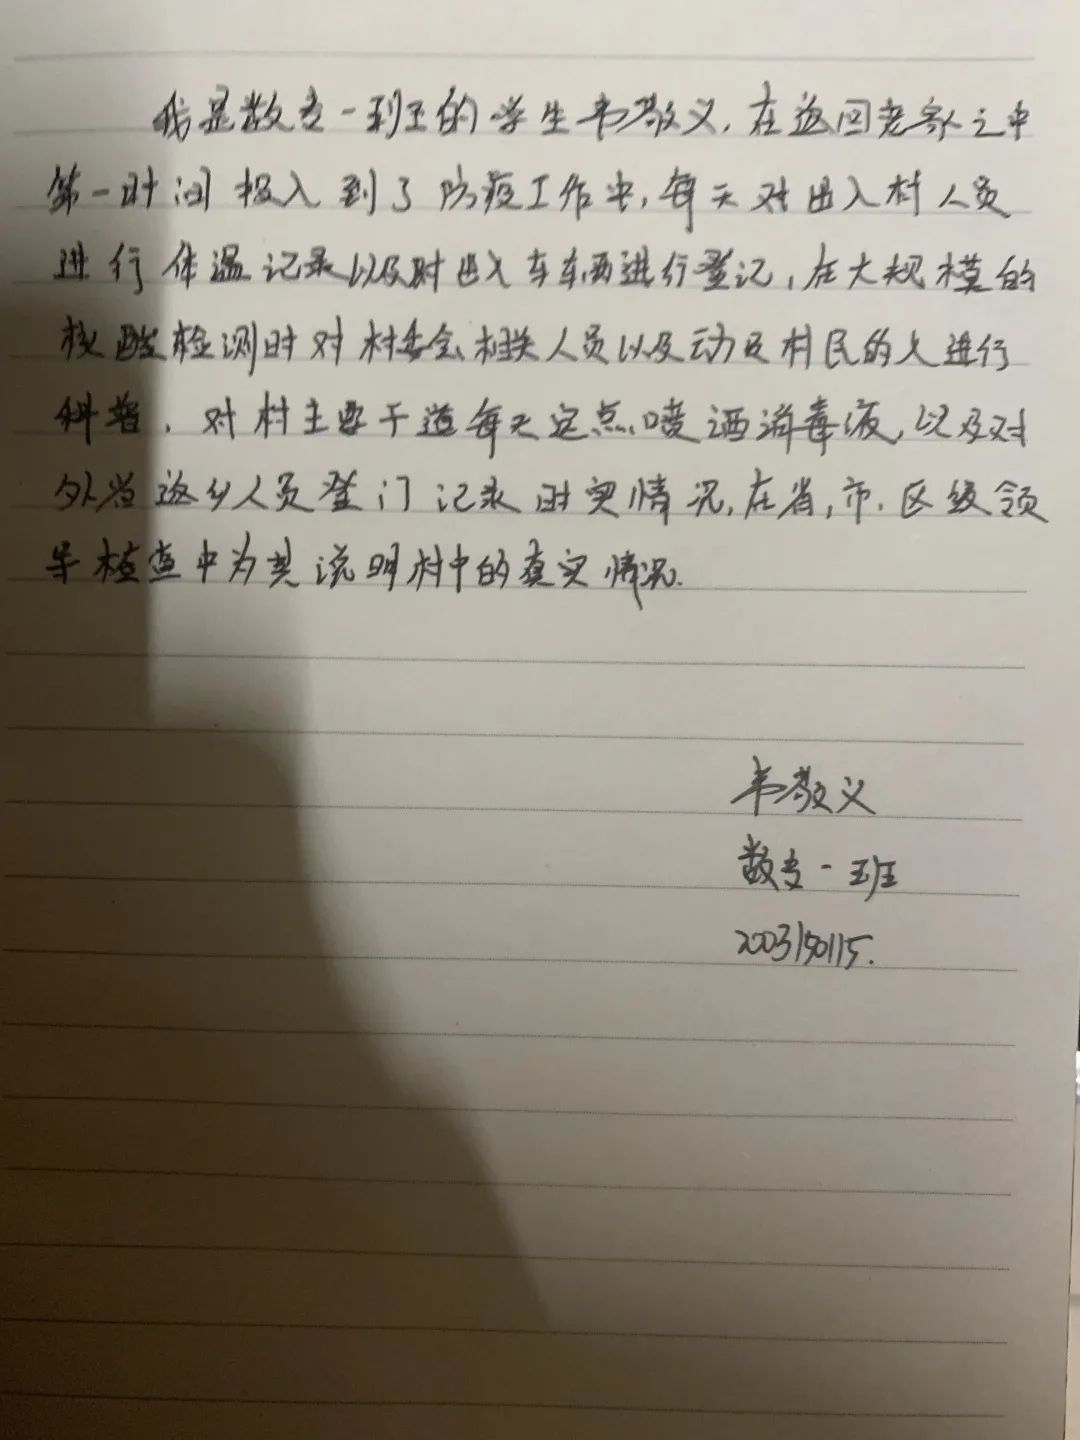 我是数专一班的学生韦敬义,在返回老家之中
第一时间投入到了防疫工作中,每天对出入村人员
进行体温记录以及对出入车辆进行登记,在大规模的
核酸检测时对村委会相关人员以及动员村民的人进行
科普,对村主要干道每天定点喷洒消毒液,以及对
外省返乡人员登门记录时实情况,在省,市.区级领
导检查中为其说明村中的真实情况.
韦敬义
数专一班
2003150115.